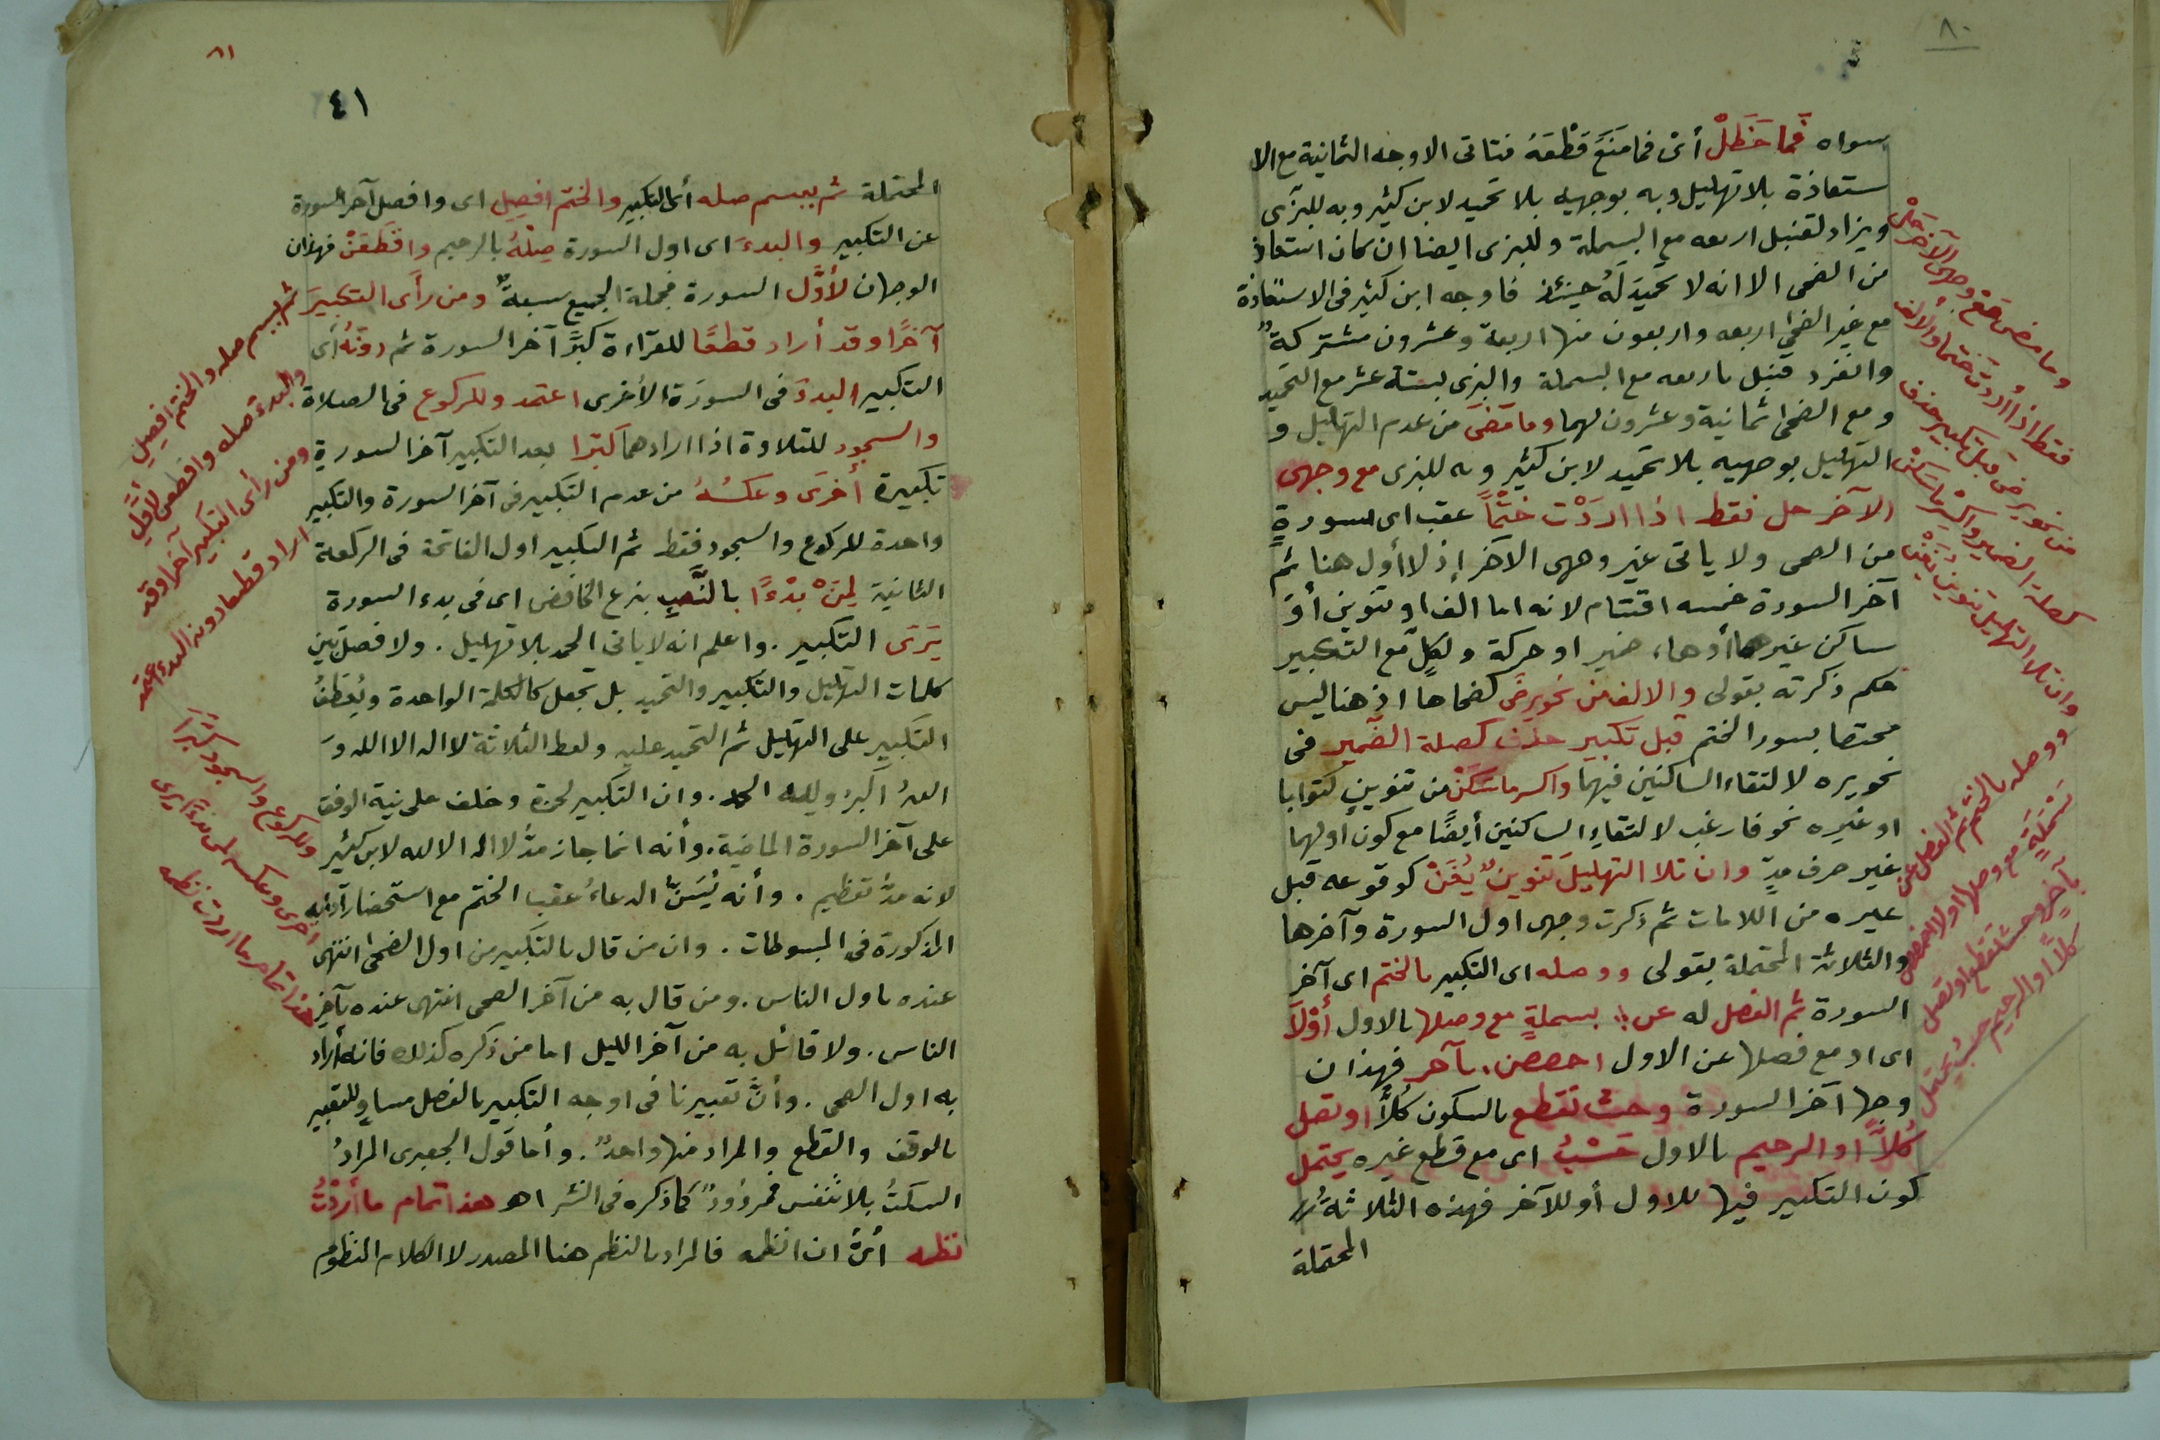 ٨٠
سواه فما حَظَلْ أى فما مَنَعَ قَطْعَهُ فتاتى الاوجه الثمانية مع الا
ستعاذة بلا تهليل وبه بوجهيه بلا تحميد لابن كثير وبه للبزى
ويزاد لقنبل اربعه مع البسملة وللبزى ايضا ان كان استعاذ
من الضحى الا انه لا تحميدَ لَهُ حينئذ فاوجه ابن كثير فى الاستعاذة
مع غير الضحى اربعه واربعون منها اربعة وعشرون مشتركةٌ
وانفرد قنبل باربعه مع البسملة والبزى بستة عشر مع التحميد
ومع الضحى ثمانية وعشرون لهما وما مَضَى من عدم التهليل و
التهليل بوجهيه بلا تحميد لابن كثير وبه للبزى مع وجهى
الآخر حل فقط اذا اردْت ختْماً عقب اى سورةٍ
من الضحى ولا ياتى غير وجهى الآخر إذ لا أول هنا ثم
آخر السورة خمسه اقسام لانه اما الف او تنوين أو
ساكن غيرهما أو هاء ضمير او حركة ولكلٍّ مع التكبير
حكم ذكرته بقولى والالف من نحو يرضى كضحاها اذ هنا ليس
مختصا بسور الختم قبل تكبير حذف كصلة الضمير فى
نحو يره لالتقاء الساكنين فيهما واكسر ما سَكَنْ من تنوينٍ كتوابا
او غيره نحو فارغب لالتقاءِ الساكنين أيضًا مع كون اولهما
غير حرف مدٍّ وان تلا التهليلَ تنوينٌ يُغَنْ كوقوعه قبل
غيره من اللامات ثم ذكرت وجهى اول السورة وآخرها
والثلاثة المحتملة بقولى ووصله اى التكبير بالختم اى آخر
السورة ثم الفصل له عن بسملةٍ مع وصلها بالاول أوْلَا
اى او مع فصلها عن الاول اخصص بآخر فهذان
وجها آخر السورة وحيث تقطع بالسكون كُلًّا او تصل
كُلاًّ او الرحيم بالاول حَسْبُ اى مع قطع غيره يحتمل
كون التكبير فيها للاول أو للآخر فهذه الثلاثةُ
المحتملة
وما مضى مَعْ وجهى الآخر حَلْ
فقط اذا أردت ختماً والالف
من نحو يرضى قبل تكبير حذف
كصلة الضمير واكسر ما سَكَنْ
وان تلا التهليل تنوينٌ يُغَنْ
ووصله بالختم ثم الفصل عن
بَسْمَلَةٍ مع وصلها اولا اخصصن
بآخرٍ وحيث تقطع او تصل
كلاًّ او الرحيم حسبُ يحتمل
٨١
٤١
المحتملة ثم ببسم صله أى التكبير والختم افصِلِ اى وافصل آخر السورة
عن التكبير والبدءَ اى اول السورة صِلْهُ بالرحيم واقْطَعَنْ فهذان
الوجهان لأوَّل السورة فجملة الجميع سبعةٌ ومن رأى التكبيرَ
آخرًا وقد أراد قطعًا للقراءة كبَّر آخر السورة ثم دونَهُ أى
التكبير البدءَ فى السورَة الأخرى اعتمد وللركوع فى الصلاة
والسجود للتلاوة اذا ارادهما كبَّرا بعد التكبير آخر السورةِ
تكبيرة أخرَى وعكسُهُ من عدم التكبير فى آخر السورة والتكبير
واحدة للركوع والسجود فقط ثم التكبير اول الفاتحة فى الركعة
الثانية لِمَنْ بَدْءًا بالنَّصبِ بنزع الخافض اى فى بدء السورة
يَرَى التكبير . واعلم انه لا ياتى الحمد بلا تهليل . ولا فصلَ بَين
كلمات التهليل والتكبير والتحميد بل تجعل كالكلمة الواحدة ويُعطَفُ
التكبير على التهليل ثم التحميد عليه ولفظ الثلاثة لا اله الا الله وَ
اللهُ اكبرُ ولله الحمد . وان التكبير لحمزة وخلف على نية الوقف
على آخر السورة الماضية . وأنه انما جاز مدُّ لا اله الا الله لابن كثير
لانه مدُّ تعظيم . وأنه يُسَنُّ الدعاءُ عقب الختم مع استحضار آدابه
المذكورة فى المبسوطات . وان من قال بالتكبير من اول الضحى انتهى
عنده باول الناس . ومن قال به من آخر الضحى انتهى عنده بآخر
الناس . ولا قائل به من آخر الليل اما من ذكره كذلك فانه أراد
به اول الضحى . وأنَّ تعبيرنا فى اوجه التكبير بالفصل مساوٍ للتعبير
بالوقف والقطع والمراد منها واحدٌ . وأما قول الجعبرى المرادُ
السكتُ بلا تنفس فمردُودٌ كما ذكره فى النشر اهـ هذا تمام ما أردْتُ
نظمه أىْ ان انظمه فالمراد بالنظم هنا المصدر لا الكلام المنظوم
ثم ببسم صله والختم افصِلِ
والبدءَ صله واقطعن لأوَّلِ
ومن رأى التكبير آخرا وقد
اراد قطعا دونه البدءَ اعتمد
وللركوع والسجود كَبَّرَا
اخرى وعكسه لمن بدءًا يرى
هذا تمام ما اردت نظمه